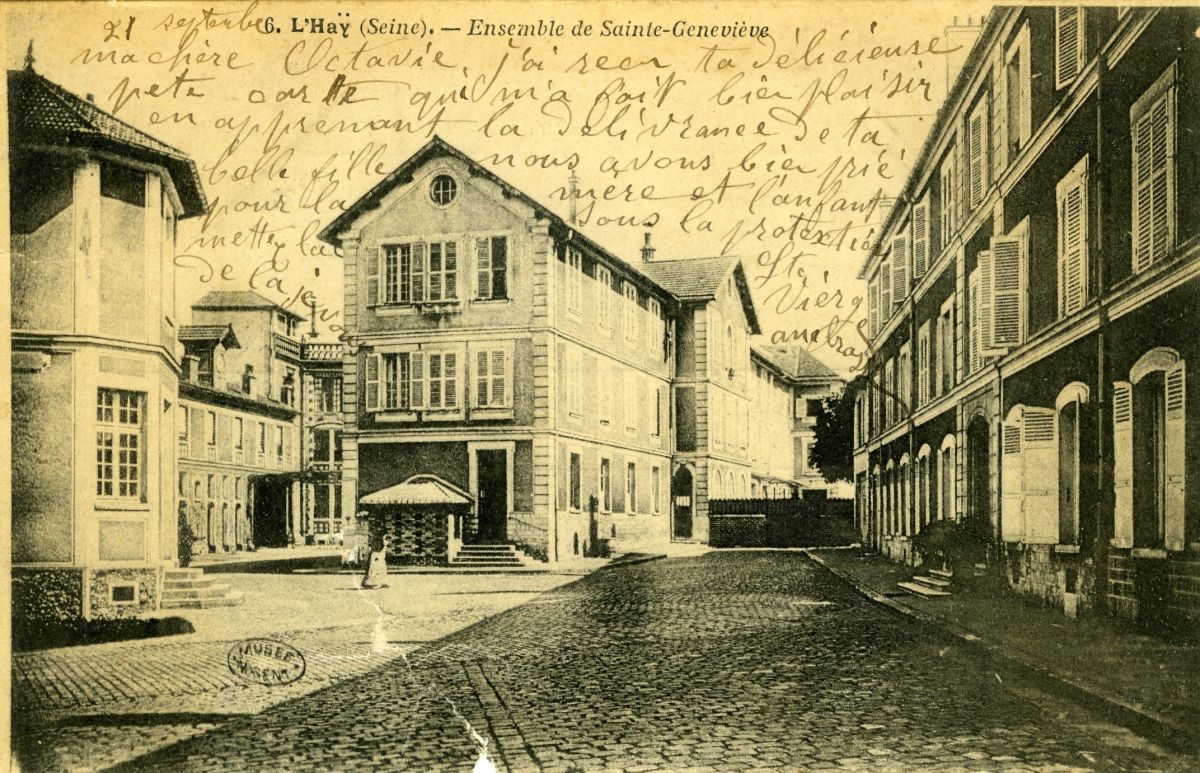 6. L'Haÿ (Seine). — Ensemble de Sainte-Geneviève
21 septembre
ma chère Octavie, j'ai reçu ta délicieuse
pete carte qui m'a fait bien plaisir
en apprenant la délivrance de ta
belle fille nous avons bien prié
pour la mère et l'enfant
mette la sous la protextié
de la Ste
Vierg
MUSÉE